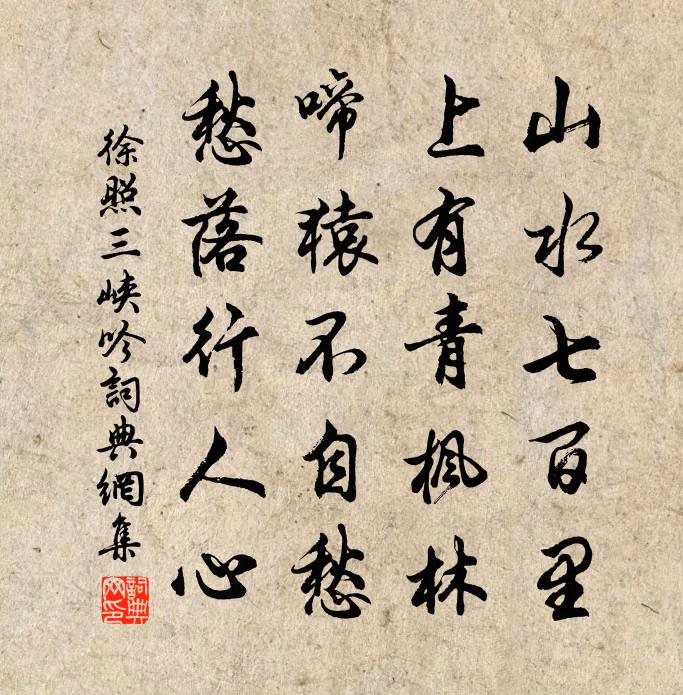 山水七百里
上有青楓林
啼猿不自愁
愁落行人心
徐照三峽吟詞典網集
詞典網印